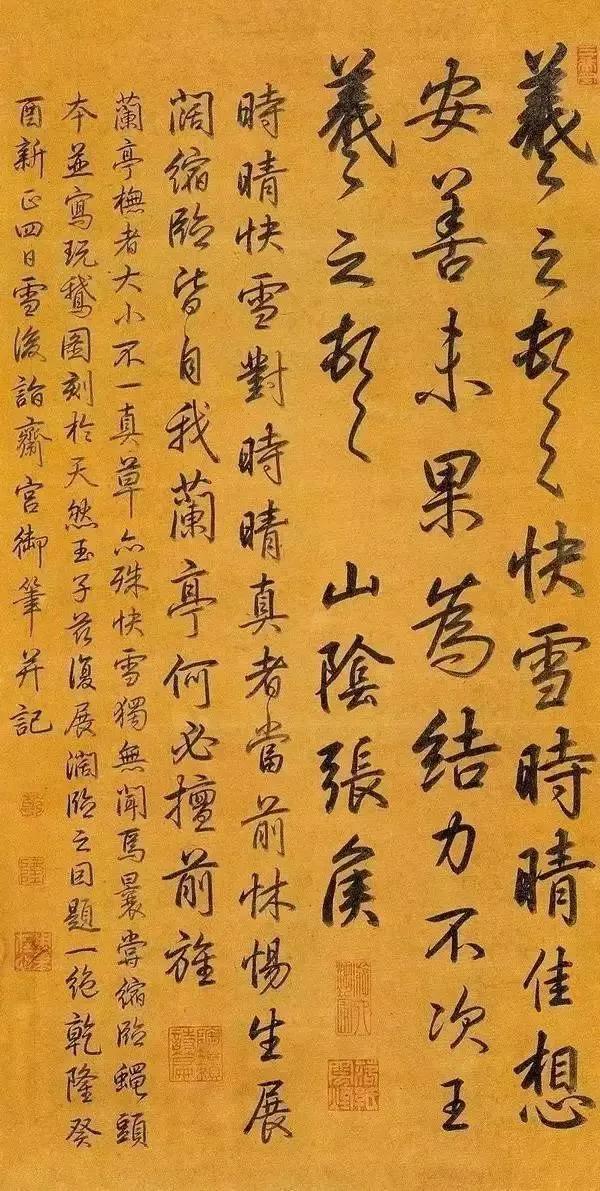 羲之頓首快雪時晴佳想
安善未果為結力不次王
羲之頓首 山陰張侯
時晴快雪對時晴真者當前怵惕生展
闊縮臨皆自我蘭亭何必擅前旌
蘭亭橅者大小不一真草亦殊快雪獨無聞焉曩嘗縮臨蠅頭
本並寫玩鵝圖刻於天然玉子茲復展闊臨之因題一絶乾隆癸
酉新正四日雪後詣齋宮御筆并記